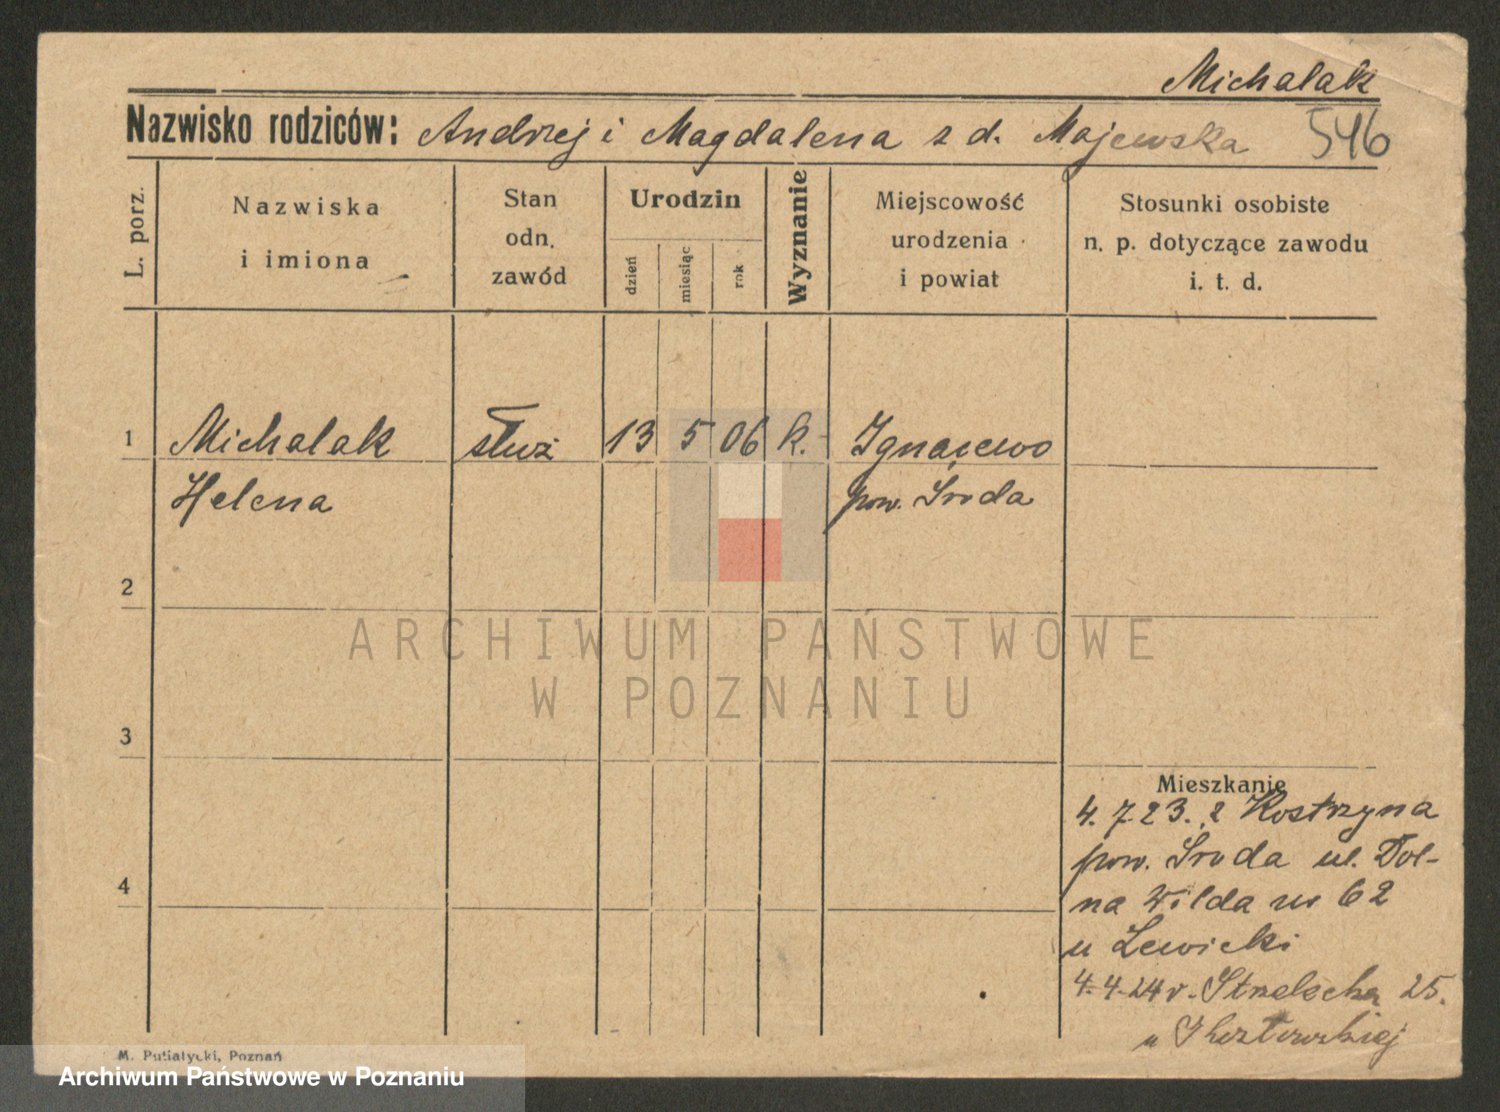 Michalak
Nazwisko rodziców: Andrzej i Magdalena z d. Majewska 546
L. porz.
Nazwiska
i imiona
Stan
odn.
zawód
Urodzin
dzień
miesiąc
rok
Wyznanie
Miejscowość
urodzenia
i powiat
Stosunki osobiste
n. p. dotyczące zawodu
i. t. d.
1 Michalak służ 13 5 06 k. Ignacewo
Helena pow. Środa
2
ARCHIWUM PAŃSTWOWE
W POZNANIU
3
Mieszkanie
4. 7 23. z Kostrzyna
pow. Środa ul. Dol-
4
na Wilda nr 62
u Lewicki
4.4.24 r. Strzelecka 25.
u
M. Putiatycki, Poznań
Archiwum Państwowe w Poznaniu